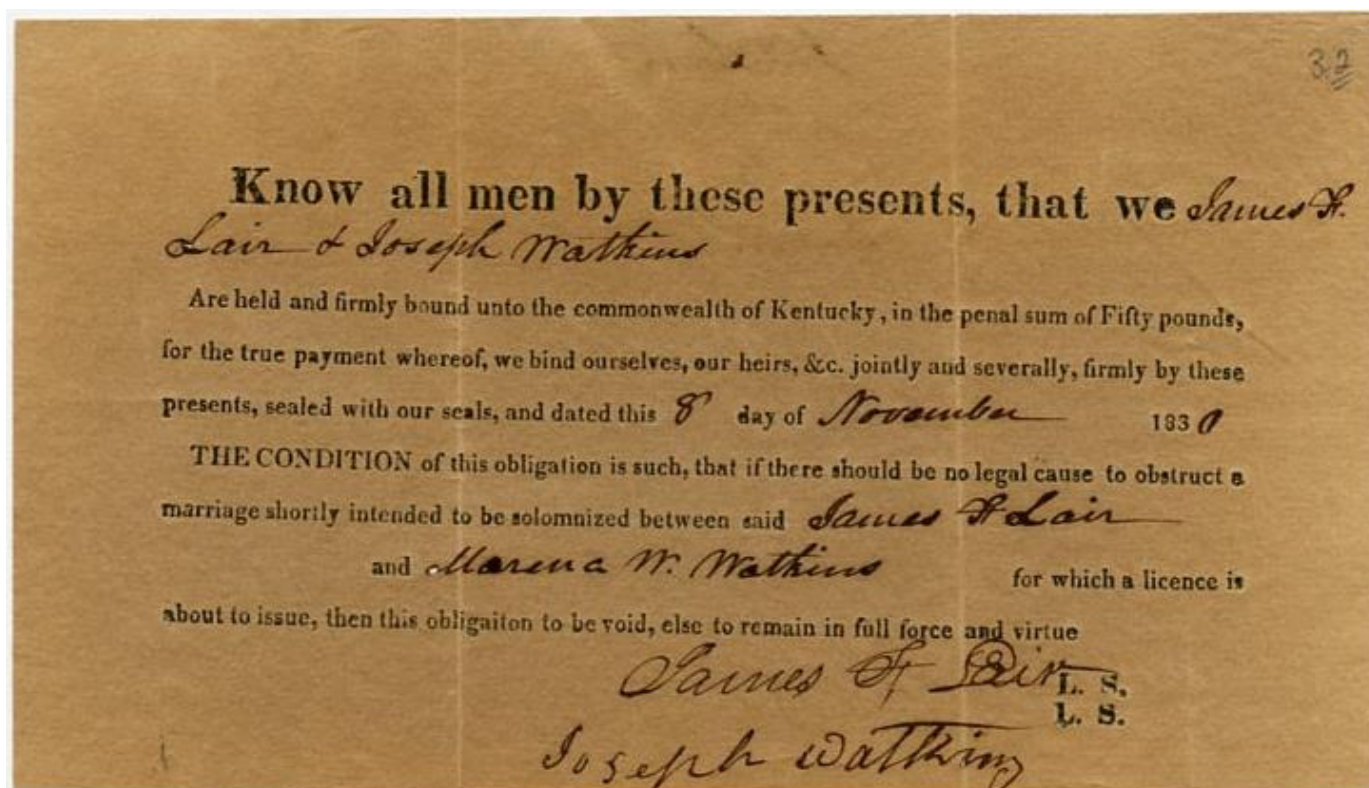 32
Know all men by these presents, that we James F.
Lair & Joseph Watkins
Are held and firmly bound unto the commonwealth of Kentucky, in the penal sum of Fifty pounds,
for the true payment whereof, we bind ourselves, our heirs, &c. jointly and severally, firmly by these
presents, sealed with our seals, and dated this 8 day of November 1830
THE CONDITION of this obligation is such, that if there should be no legal cause to obstruct a
marriage shortly intended to be solomnized between said James F Lair
and Marena W. Watkins for which a licence is
about to issue, then this obligaiton to be void, else to remain in full force and virtue
James F Lair L. S.
L. S.
Joseph Watkins